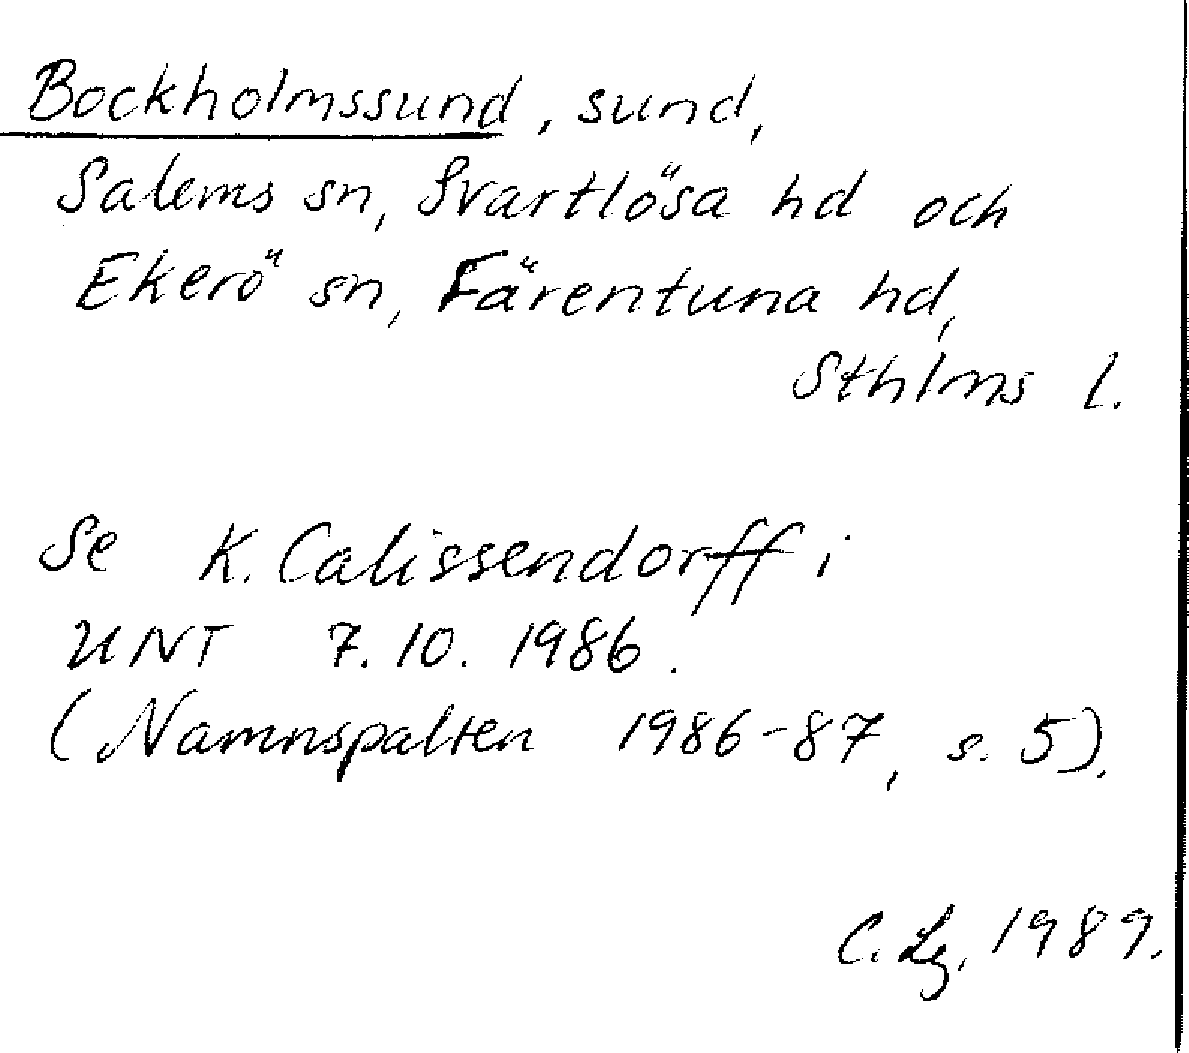 Bockholmssund, sund,
Salems sn, Svartlösa hd och
Ekerö sn, Färentuna hd,
Sthlms l.
Se K. Calissendorff i
UNT 7.10.1986.
(Namnspalten 1986-87, s. 5).
C. Lg, 1989.